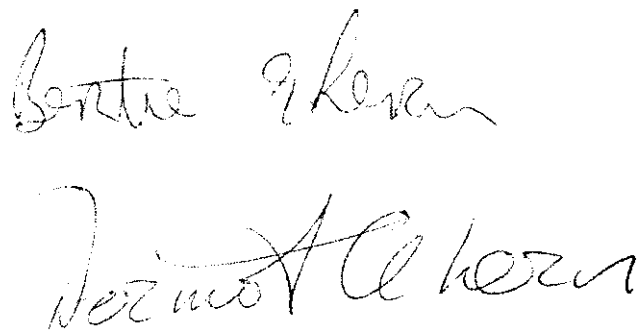 Bertie Ahern
Dermot Ahern